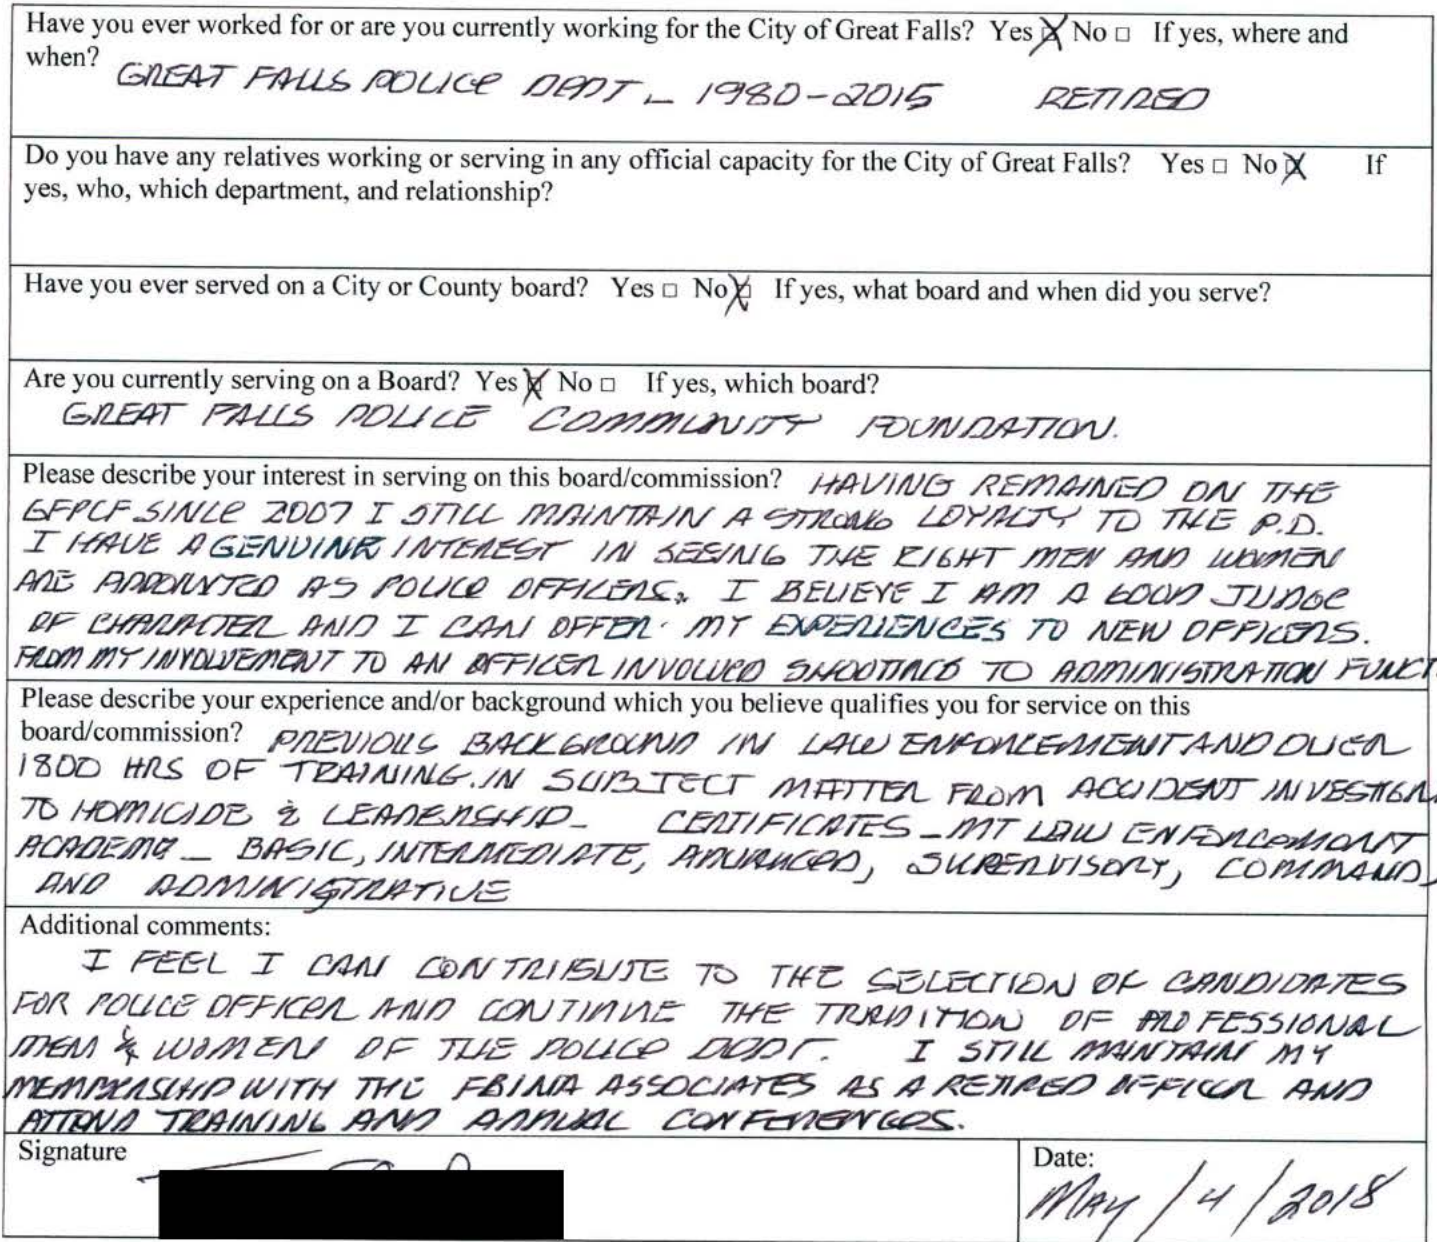 Have you ever worked for or are you currently working for the City of Great Falls? Yes ☒ No □ If yes, where and
when? GREAT FALLS POLICE DEPT – 1980-2015 RETIRED
Do you have any relatives working or serving in any official capacity for the City of Great Falls? Yes □ No ☒ If
yes, who, which department, and relationship?
Have you ever served on a City or County board? Yes □ No ☒ If yes, what board and when did you serve?
Are you currently serving on a Board? Yes ☒ No □ If yes, which board?
GREAT FALLS POLICE COMMUNITY FOUNDATION.
Please describe your interest in serving on this board/commission? HAVING REMAINED ON THE
GFPCF SINCE 2007 I STILL MAINTAIN A STRONG LOYALTY TO THE P.D.
I HAVE A GENUINE INTEREST IN SEEING THE RIGHT MEN AND WOMEN
ARE APPOINTED AS POLICE OFFICERS. I BELIEVE I AM A GOOD JUDGE
OF CHARACTER AND I CAN OFFER MY EXPERIENCES TO NEW OFFICERS.
FROM MY INVOLVEMENT TO AN OFFICER INVOLVED SHOOTING TO ADMINISTRATION FUNCT
Please describe your experience and/or background which you believe qualifies you for service on this
board/commission? PREVIOUS BACKGROUND IN LAW ENFORCEMENT AND OVER
1800 HRS OF TRAINING. IN SUBJECT MATTER FROM ACCIDENT INVESTIGA
TO HOMICIDE & LEADERSHIP – CERTIFICATES – MT LAW ENFORCEMENT
ACADEMY – BASIC, INTERMEDIATE, ADVANCED, SUPERVISORY, COMMAND,
AND ADMINISTRATIVE
Additional comments:
I FEEL I CAN CONTRIBUTE TO THE SELECTION OF CANDIDATES
FOR POLICE OFFICER AND CONTINUE THE TRADITION OF PROFESSIONAL
MEN & WOMEN OF THE POLICE DEPT. I STILL MAINTAIN MY
MEMBERSHIP WITH THE FBINA ASSOCIATES AS A RETIRED OFFICER AND
ATTEND TRAINING AND ANNUAL CONFERENCES.
Signature
Date:
MAY / 4 / 2018